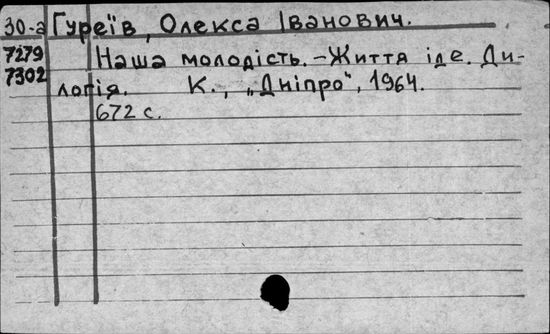 30-а Гуреїв, Олекса Іванович.
7279 Наша молодість. – Життя іде. Ди-
7302 логія. К., „Дніпро“, 1964.
672 с.